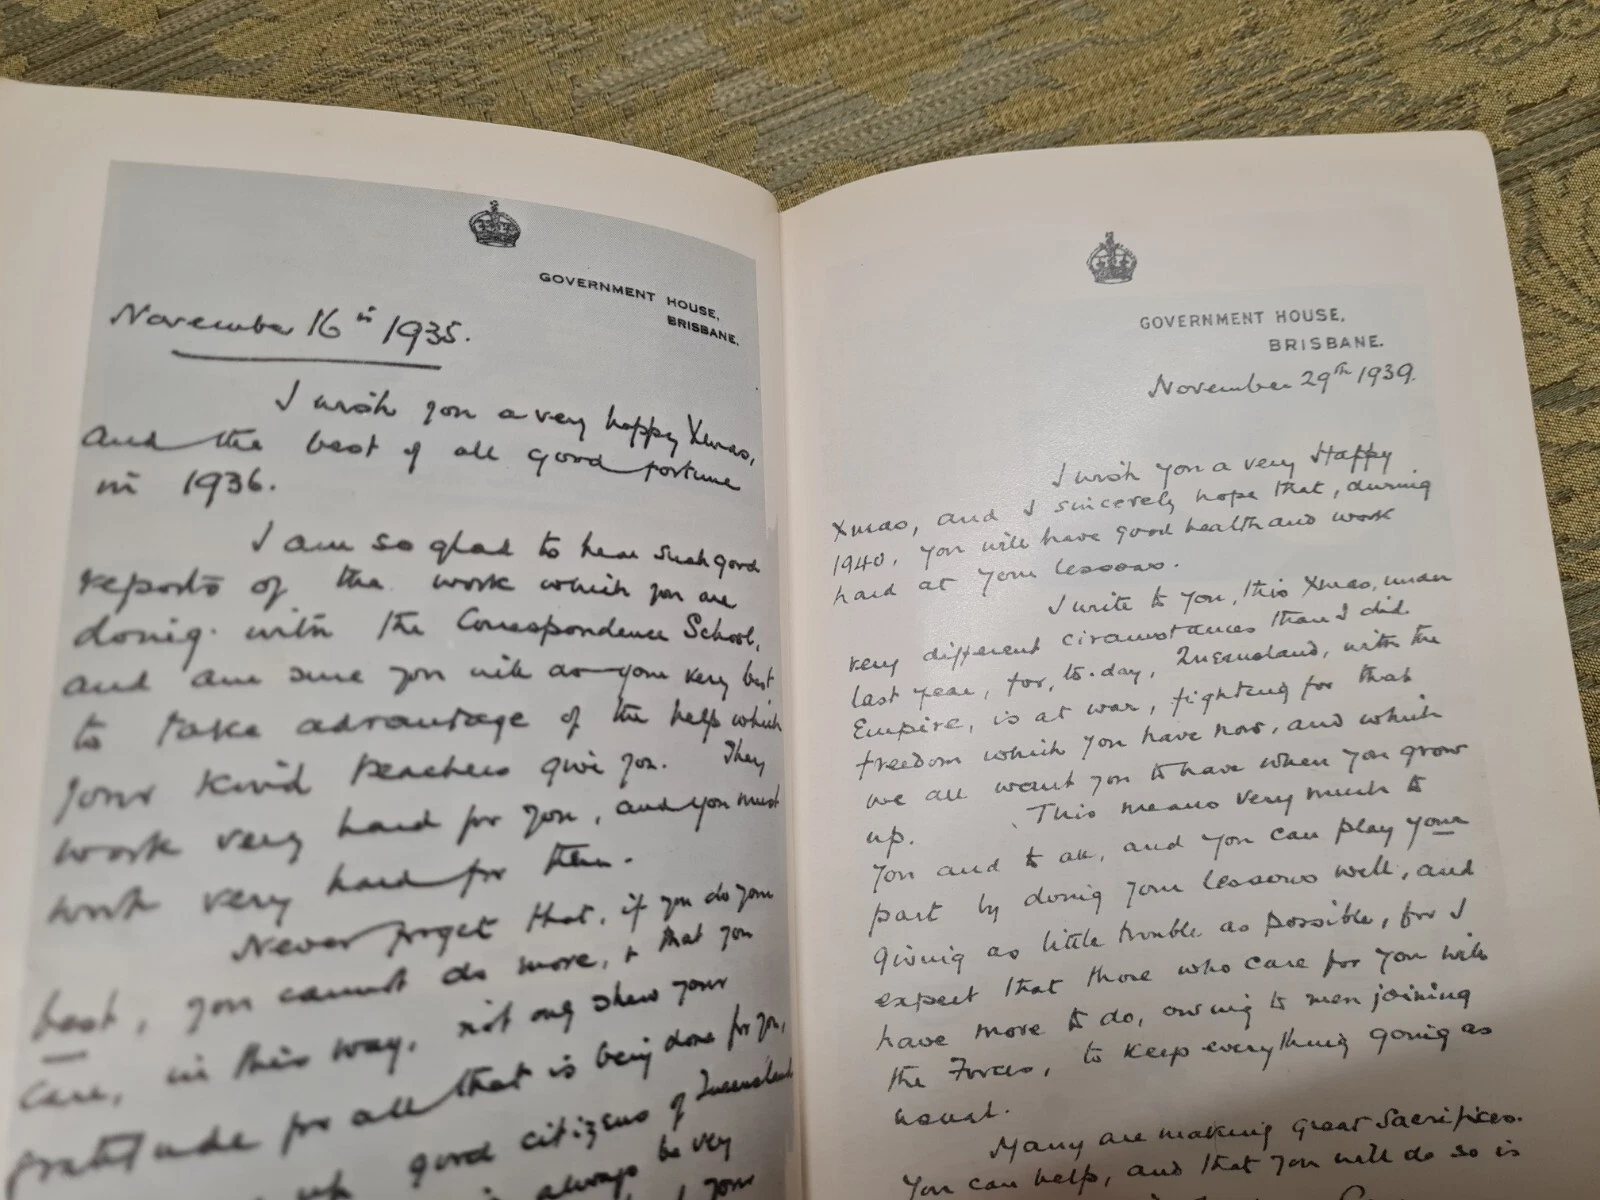 GOVERNMENT HOUSE,
BRISBANE.
November 16th 1935.
I wish you a very happy Xmas,
and the best of all good fortune
in 1936.
I am so glad to hear such good
reports of the work which you are
doing with the Correspondence School,
and am sure you will do your very best
to take advantage of the help which
your kind teachers give you. They
work very hard for you, and you must
work very hard for them.
Never forget that, if you do your
best, you cannot do more, & that you
can, in this way, not only shew your
gratitude for all that is being done for you,
up good citizens of Queensland
always be very
your
GOVERNMENT HOUSE,
BRISBANE.
November 29th 1939.
I wish you a very Happy
Xmas, and I sincerely hope that, during
1940, you will have good health and work
hard at your lessons.
I write to you, this Xmas, under
very different circumstances than I did
last year, for, to-day, Queensland, with the
Empire, is at war, fighting for that
freedom which you have now, and which
we all want you to have when you grow
up. This means very much to
you and to all, and you can play your
part by doing your lessons well, and
giving as little trouble as possible, for I
expect that those who care for you will
have more to do, owing to men joining
the Forces, to keep everything going as
usual.
Many are making great sacrifices.
You can help, and that you will do so is